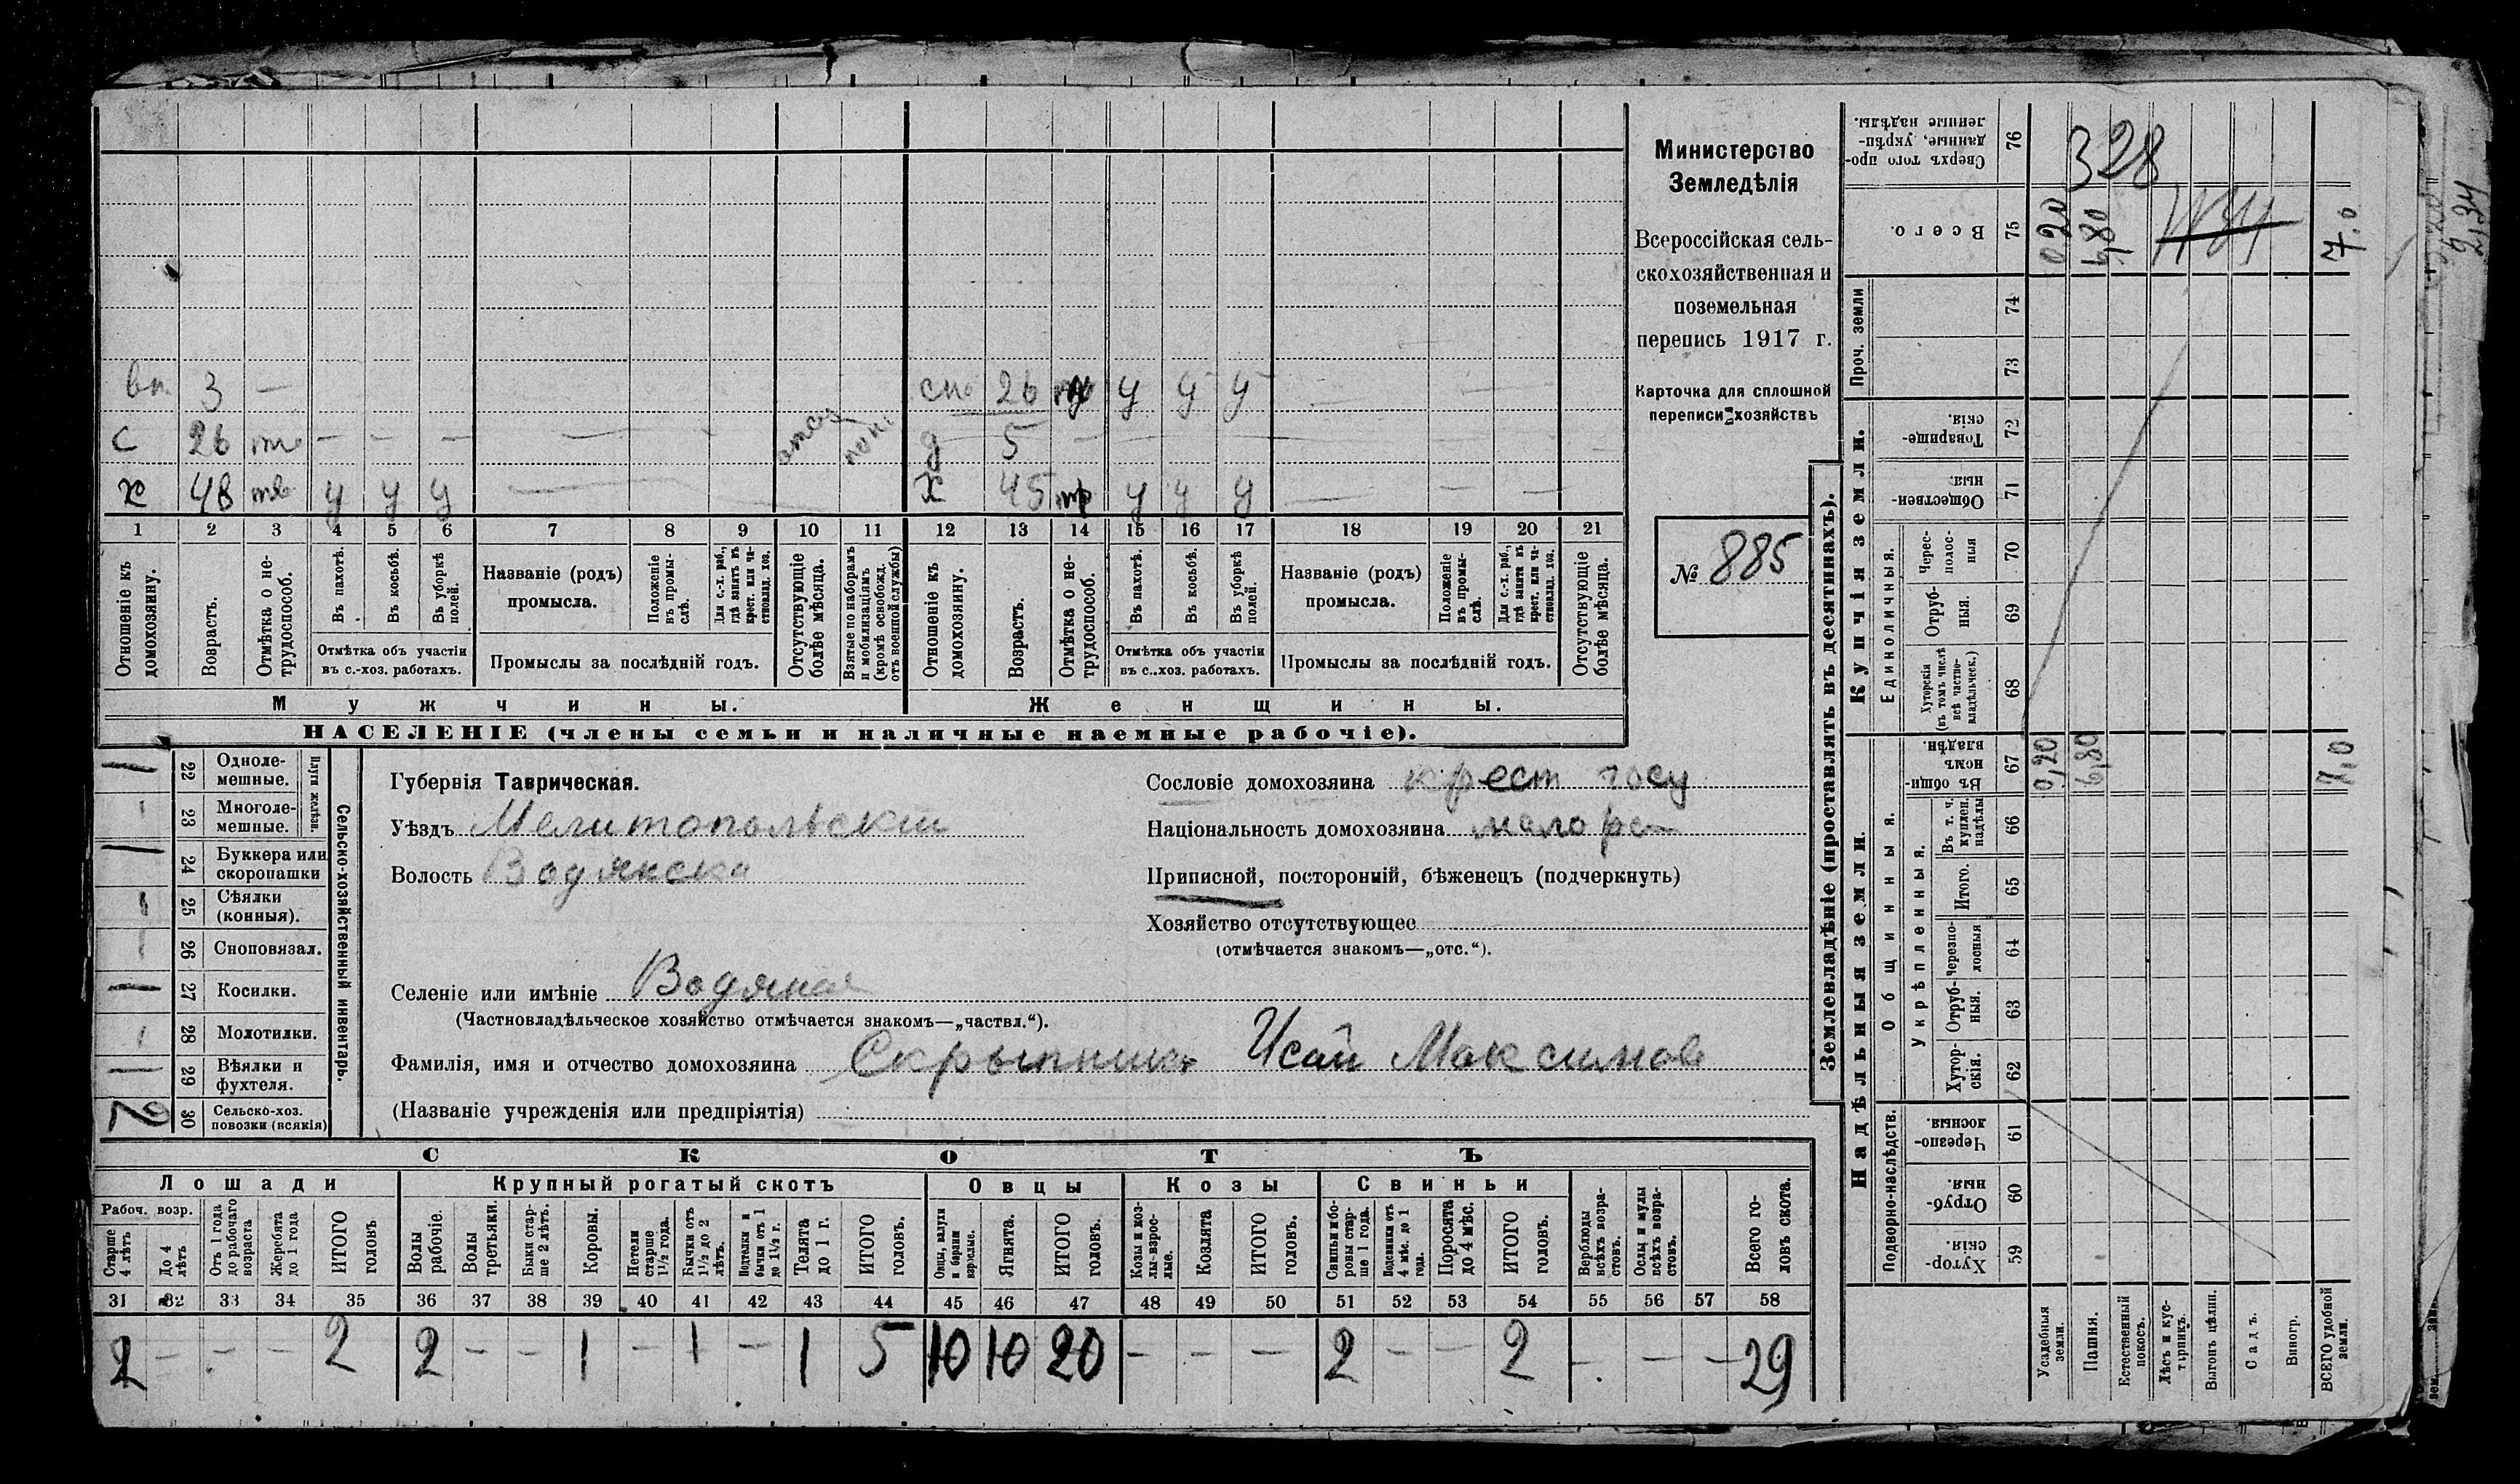 вн 3 —
с 26 — — — — — —
х 48 у у у —
сно 26 у у у — —
д 5 —
х 45 у у у — — —
1 2 3 4 5 6 7 8 9 10 11 12 13 14 15 16 17 18 19 20 21
Отношеніе къ домохозяину.
Возрастъ.
Отмѣтка о не-
трудоспособ.
Въ пахотѣ.
Въ косьбѣ.
Въ уборкѣ полей.
Отмѣтка объ участіи
въ с.-хоз. работахъ.
Названіе (родъ)
промысла.
Положеніе въ промы-
слѣ.
Для с.-х. раб., гдѣ занятъ въ крест. или ча-
стновлад. хоз.
Промыслы за послѣдній годъ.
Отсутствующіе болѣе мѣсяца.
Взятые по наборамъ и мобилизаціямъ (кромѣ освобожд. отъ военной службы)
Отношеніе къ домохозяину.
Возрастъ.
Отмѣтка о не-
трудоспособ.
Въ пахотѣ.
Въ косьбѣ.
Въ уборкѣ полей.
Отмѣтка объ участіи
въ с..хоз. работахъ.
Названіе (родъ)
промысла.
Положеніе въ промы-
слѣ.
Для с.-х. раб., гдѣ занята въ крест. или ча-
стновлад. хоз.
Промыслы за послѣдній годъ.
Отсутствующіе болѣе мѣсяца.
Мужчины.
Женщины.
НАСЕЛЕНІЕ (члены семьи и наличные наемные рабочіе).
Министерство
Земледѣлія
Всероссійская сель-
скохозяйственная и
поземельная
перепись 1917 г.
Карточка для сплошной
переписи хозяйствъ
№ 885
Сельско-хозяйственный инвентарь.
Плуги желѣзн.
22 Однолe-
мешные.
23 Многоле-
мешные.
24 Буккера или
скоропашки
25 Сѣялки
(конныя).
26 Сноповязал.
27 Косилки.
28 Молотилки.
29 Вѣялки и
фухтеля.
30 Сельско-хоз.
повозки (всякія)
2
Губернія Таврическая.
Уѣздъ Мелитопольскій
Волость Водянска
Селеніе или имѣніе Водяная
(Частновладѣльческое хозяйство отмѣчается знакомъ—„частвл.“).
Фамилія, имя и отчество домохозяина Скрыпник Исай Максимов
(Названіе учрежденія или предпріятія)
Сословіе домохозяина крест госу
Національность домохозяина малорс
Приписной, посторонній, бѣженецъ (подчеркнуть)
Хозяйство отсутствующее
(отмѣчается знакомъ—„отс.“).
СКОТЪ
Лошади
Крупный рогатый скотъ
Овцы
Козы
Свиньи
Рабоч. возр.
Старше 4 лѣтъ
До 4 лѣтъ
Отъ 1 года до рабочаго возраста
Жеребята до 1 года
ИТОГО головъ
Волы рабочіе.
Волы третьяки.
Быки стар-
ше 2 лѣтъ.
Коровы.
Нетели старше 1½ года.
Бычки отъ 1½ до 2 лѣтъ.
Подтелки и бычки отъ 1 до 1½ г.
Телята до 1 г.
ИТОГО головъ.
Овцы, валухи и бараны взрослые.
Ягнята.
ИТОГО головъ.
Козы и коз-
лы взрос-
лые.
Козлята
ИТОГО головъ.
Свиньи и бо-
ровы стар-
ше 1 года.
Подсвинки отъ 4 мѣс. до 1 года.
Поросята до 4 мѣс.
ИТОГО головъ.
Верблюды всѣхъ возра-
стовъ.
Ослы и мулы всѣхъ возра-
стовъ.
Всего го-
ловъ скота.
31 32 33 34 35 36 37 38 39 40 41 42 43 44 45 46 47 48 49 50 51 52 53 54 55 56 57 58
2 — — — 2 2 — — 1 — 1 — 1 5 10 10 20 — — — 2 — — 2 — — — 29
Землевладѣніе (проставлять въ десятинахъ).
Сверхъ того про-
данные, укрѣп-
ленные надѣлы.
76
328
Всего.
75
0 20
6,80
7.0
Проч. земли
74
73
Купчія земли.
Товарище-
скія.
72
Обществен-
ныя.
71
Единоличныя.
Черес-
полос-
ныя
70
Отруб-
ныя.
69
Хуторскія
(въ томъ числѣ всѣ частно-
владѣльческ.)
68
Надѣльныя земли.
Общинныя.
Въ общи-
номъ владѣн.
67
0,20
6,80
7,0
Укрѣпленныя.
Въ т. ч. куплен. надѣлы
66
Итого.
65
Черезпо-
лосныя
64
Отруб-
ныя.
63
Хутор-
скія.
62
Подворно-наслѣдств.
Черезпо-
лосныя
61
Отруб-
ныя.
60
Хутор-
скія
59
Усадебныя земли.
Пашня.
Естественный покосъ.
Лѣсъ и кус-
тарникъ.
Выгонъ цѣлин.
Садъ.
Виногр.
ВСЕГО удобной земли.